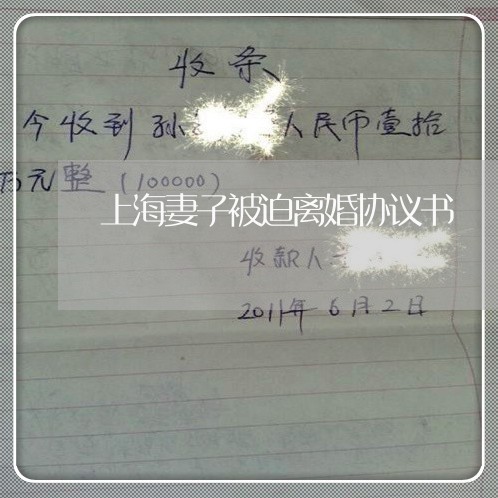 收条
今收到孙 人民币壹拾
万元整(100000)
上海妻子被迫离婚协议书
收款人
2011年6月2日